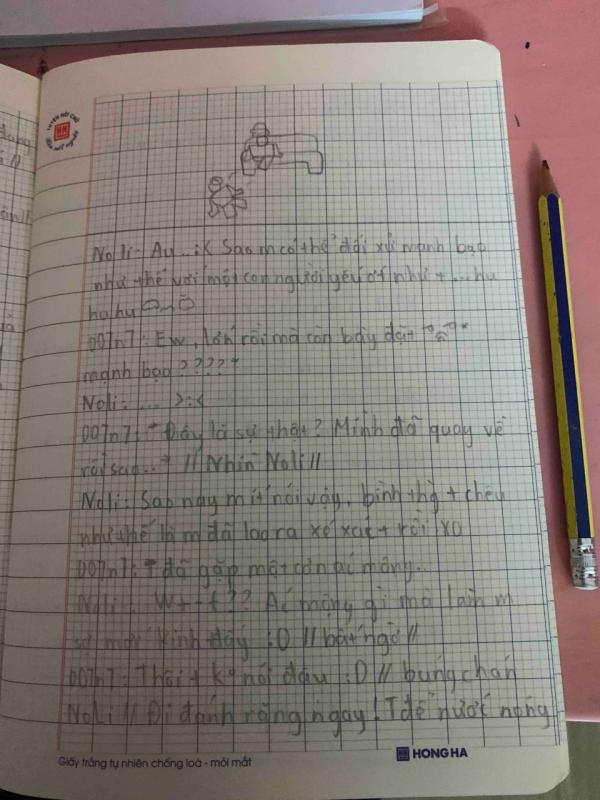 Noli: Au...:( Sao m có thể đối xử mạnh bạo
như thế với một con người yếu ớt như t... hu
hu hu
007n7: Ew, lớn rồi mà còn bày đặt
mạnh bạo????*
Noli: ... >:<
007n7: *Đây là sự thật? Mình đã quay về
rồi sao..* // Nhìn Noli //
Noli: Sao nay m ít nói vậy, bình thg t chêu
như thế là m đã loạn ra t rồi XD
007n7: T đã gặp một cơn ác mộng..
Noli: W--t?? Ác mộng gì mà làm m
sợ kinh đấy :D // bất ngờ //
007n7: Thôi t k nói đâu :D // bung chăn
Noli // Đi đánh răng ngay! T để nước nóng
Giấy trắng tự nhiên chống loá - mỏi mắt
HONG HA